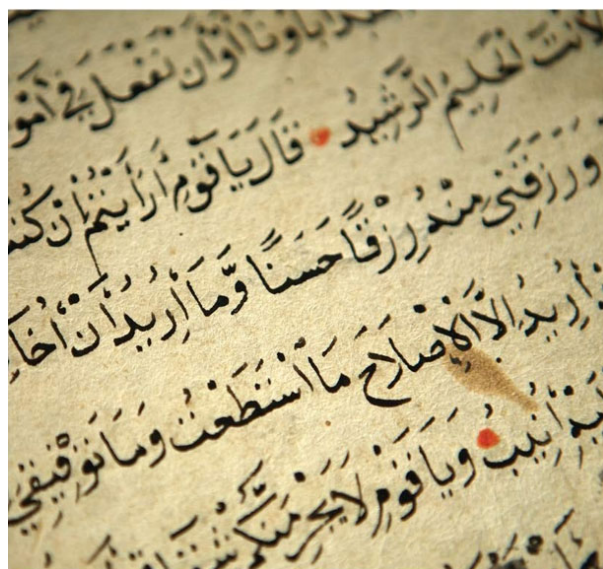 آبَاؤُنَا أَوْ أَنْ نَفْعَلَ فِي
لَأَنْتَ الْحَلِيمُ الرَّشِيدُ قَالَ يَا قَوْمِ أَرَأَيْتُمْ إِنْ
وَرَزَقَنِي مِنْهُ رِزْقًا حَسَنًا وَّمَا أُرِيدُ أَنْ
أُرِيدُ إِلَّا الْإِصْلَاحَ مَا اسْتَطَعْتُ وَمَا تَوْفِيقِي
أُنِيبُ وَيَا قَوْمِ لَا يَجْرِمَنَّكُمْ